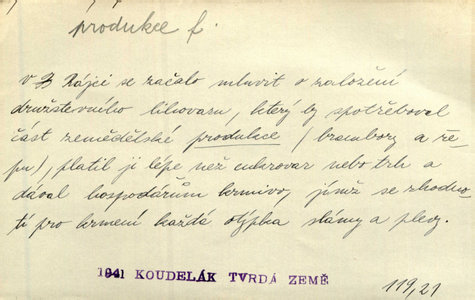 produkce f.
v B Rájci se začalo mluvit o založení
družstevního lihovaru, který by spotřeboval
část zemědělské produkce (brambory a ře-
pu), platil ji lépe než cukrovar nebo trh a
dával hospodářům krmivo, jímž se zhodno-
tí pro krmení každá otýpka slámy a plev.
1941 KOUDELÁK TVRDÁ ZEMĚ
119,21